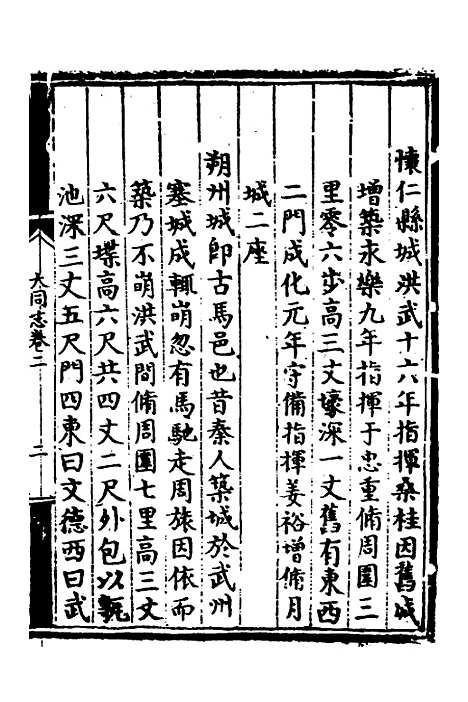 懷仁縣城洪武十六年指揮桑桂因舊城
增築永樂九年指揮于忠重脩周圍三
里零六步高三丈壕深一丈舊有東西
二門成化元年守備指揮姜裕增脩月
城二座
朔州城卽古馬邑也昔秦人築城於武州
塞城成輒崩忽有馬馳走周旋因依而
築乃不崩洪武間脩周圍七里高三丈
六尺堞高六尺共四丈二尺外包以甎
池深三丈五尺門四東曰文德西曰武
大同志卷二
二